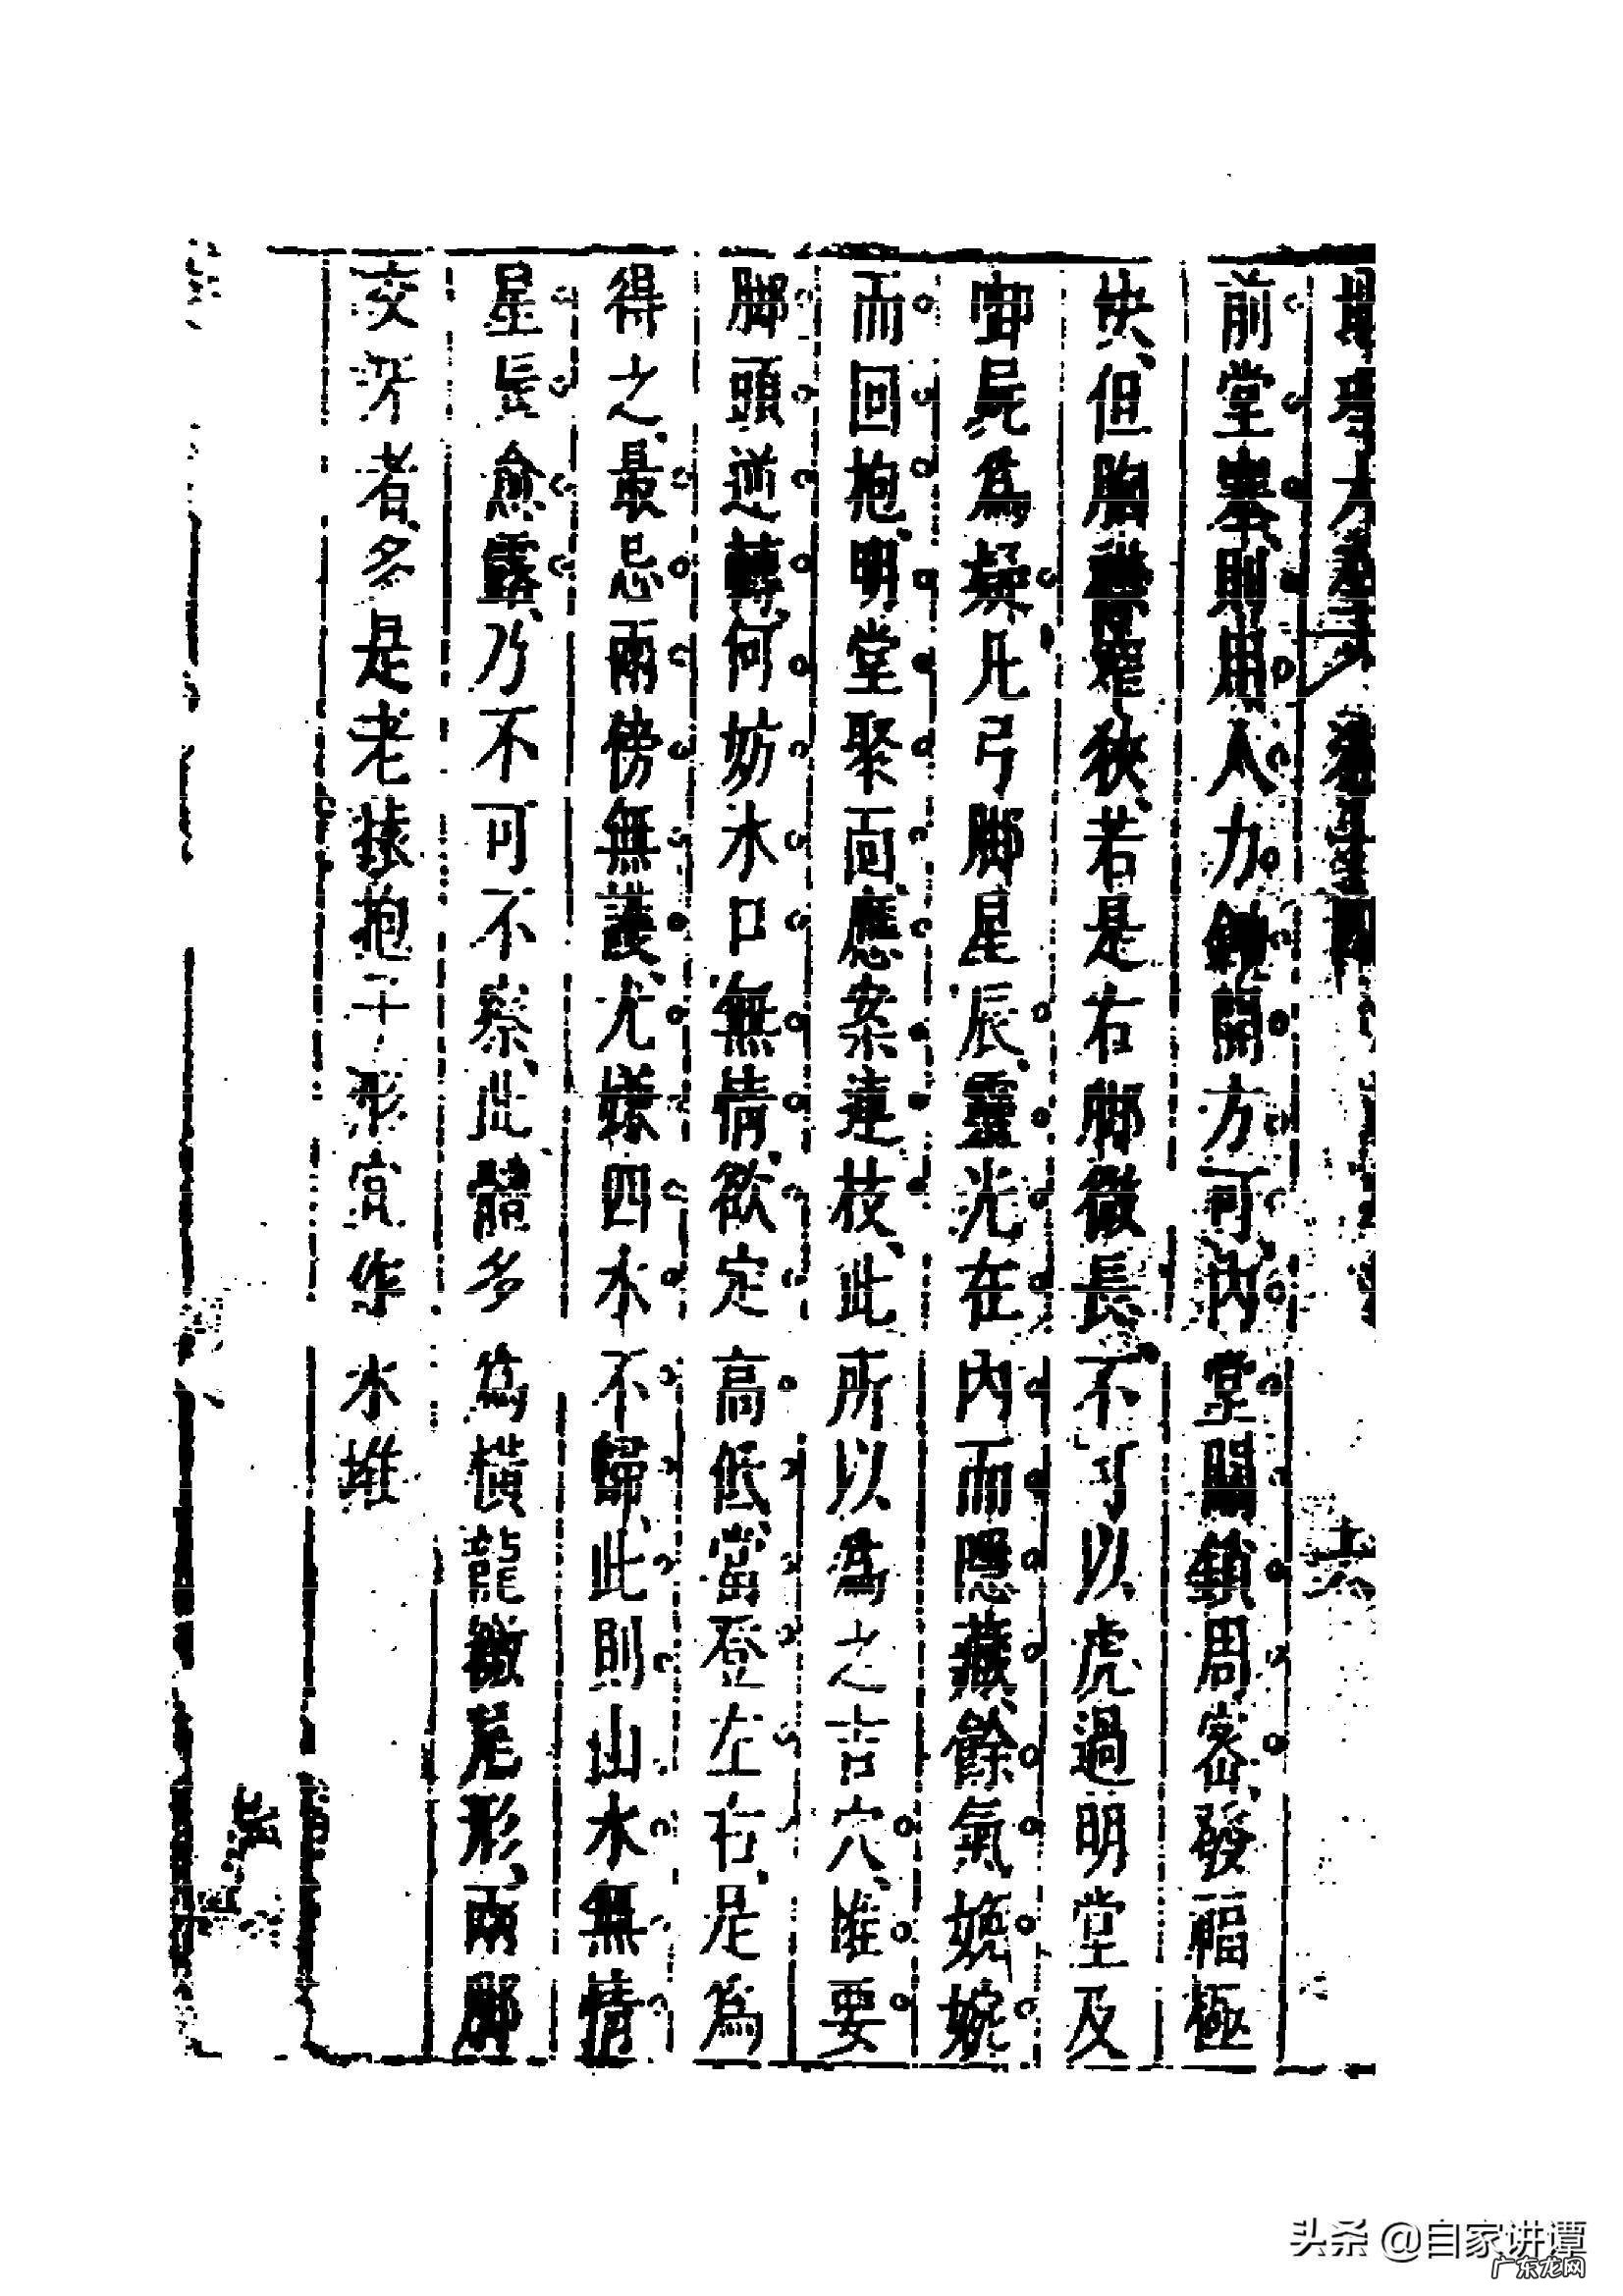 前堂塞則用人力鋤開方可內堂關鎖周密發福極
快但胸襟窄狹若是右脚微長不可以虎過明堂及
啣屍爲疑凡弓脚星辰靈光在內而隱藏餘氣婉婉
而回抱明堂聚面應案連枝此所以爲之吉穴惟要
脚頭逆轉何妨水口無情欲定高低當登左右是爲
得之最忌兩傍無護尤嫌四水不歸此則山水無情
星辰愈露乃不可不察此體多爲橫龍徼尾形兩脚
交牙者多是老猿抱子形宜作水堆
六
头条 @自家讲谭
广东龙网